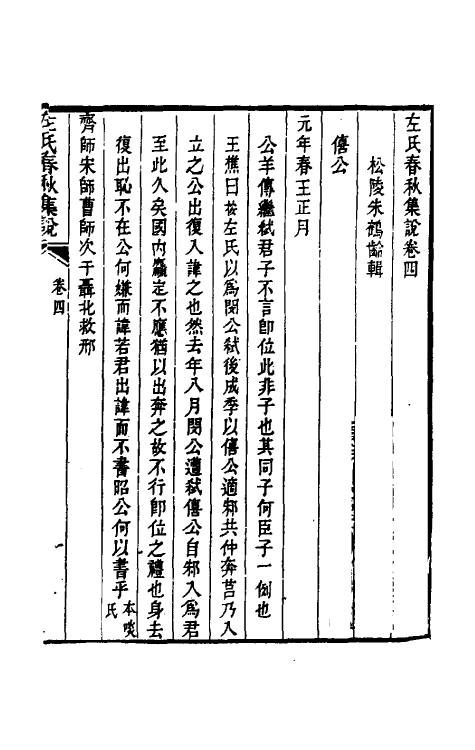 左氏春秋集說卷四
松陵朱鶴齡輯
僖公
元年春王正月
公羊傳繼弑君子不言卽位此非子也其同子何臣子一例也
王樵曰按左氏以爲閔公弑後成季以僖公適邾共仲奔莒乃入
立之公出復入諱之也然去年八月閔公遭弑僖公自邾入爲君
至此久矣國內麤定不應猶以出奔之故不行卽位之禮也身去
復出恥不在公何嫌而諱若君出諱而不書昭公何以書乎本啖氏
齊師宋師曹師次于聶北救邢
左氏春秋集說
卷四
一